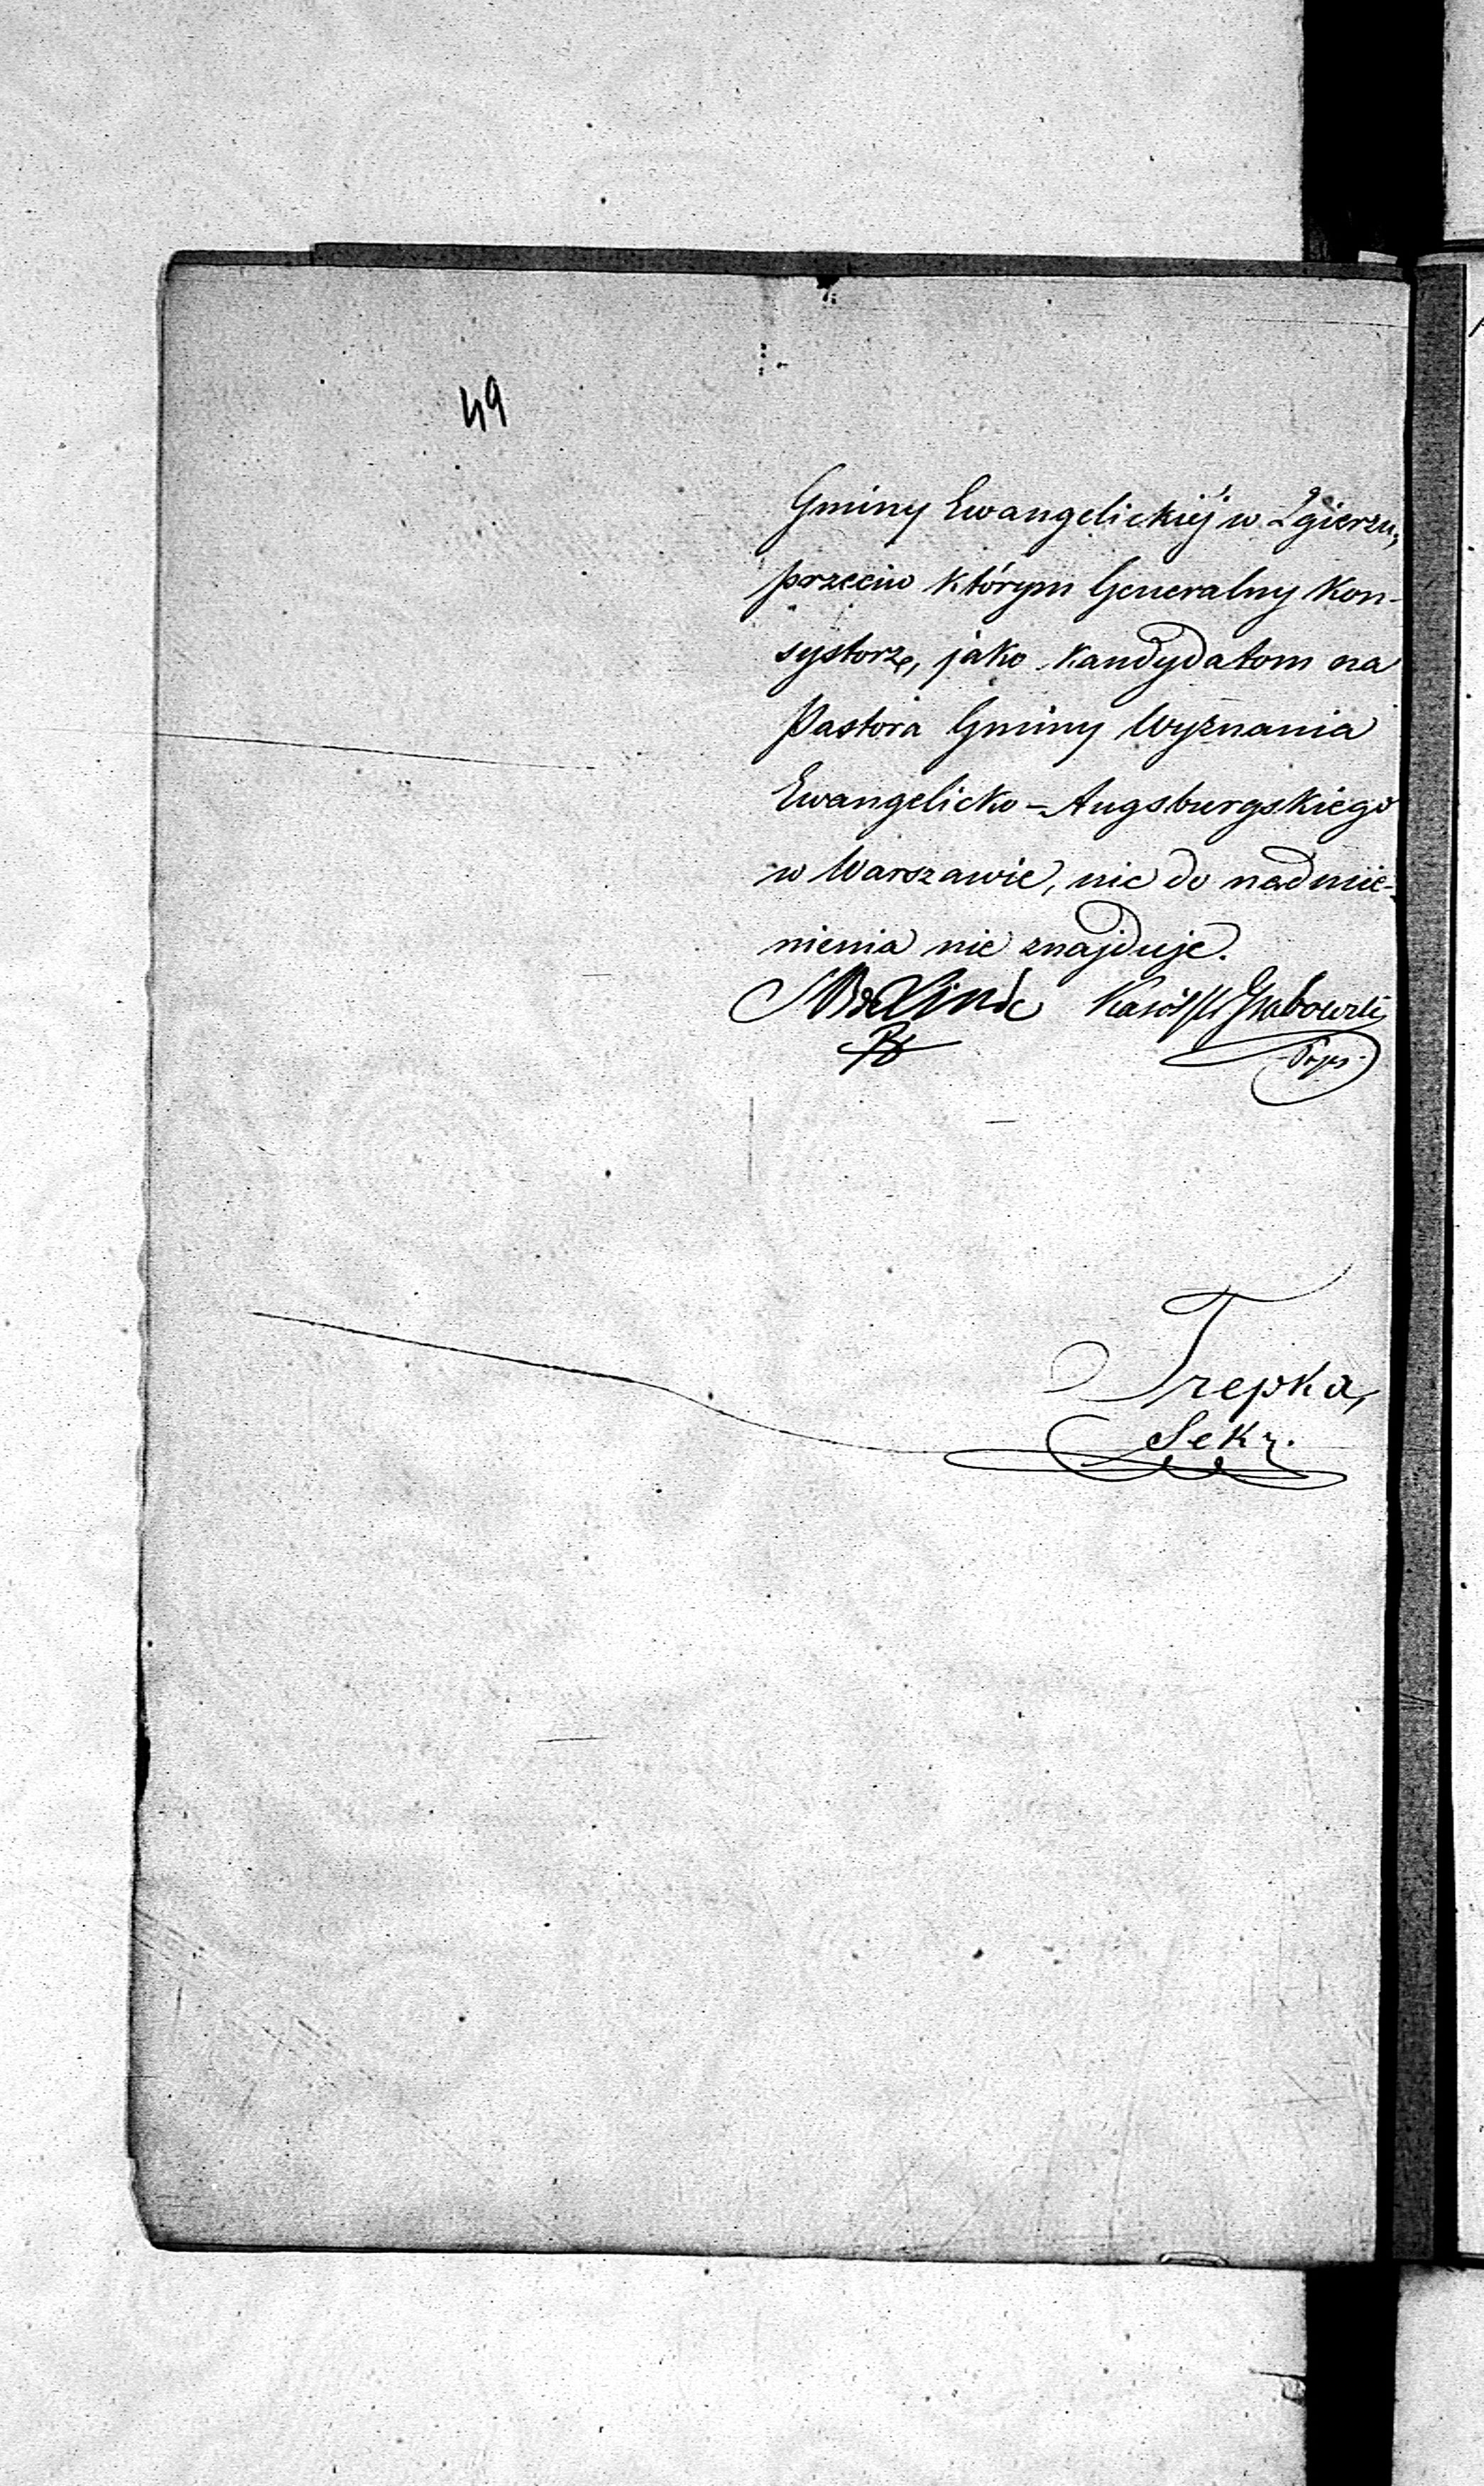 49
Gminy Ewangelickiéj w Zgierzu,
przeciw którym Generalny Kon-
systorz, jako kandydatom na
Pastora Gminy Wyznania
Ewangelicko-Augsburgskiego
w Warszawie, nic do nadmie-
nienia nie znajduje.
Linde Karól Grabowski
Trepka,
Sekr.